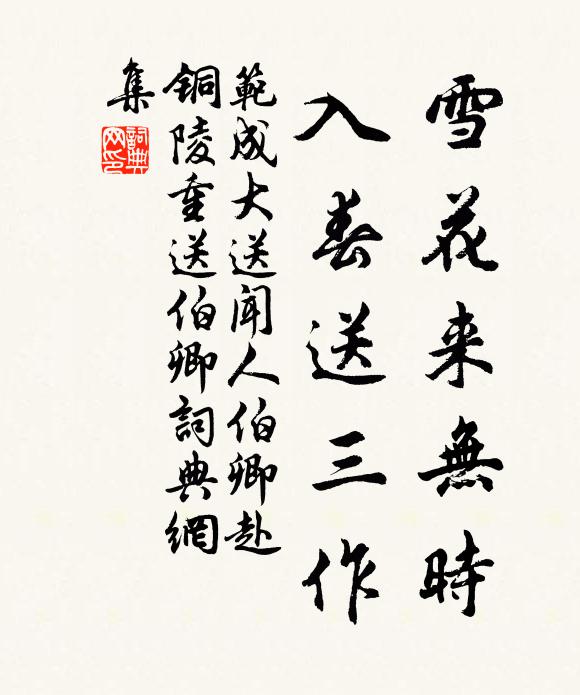 雪花来無時
入春送三作
範成大送聞人伯卿赴
铜陵重送伯卿詞典網
集
詞典
网印